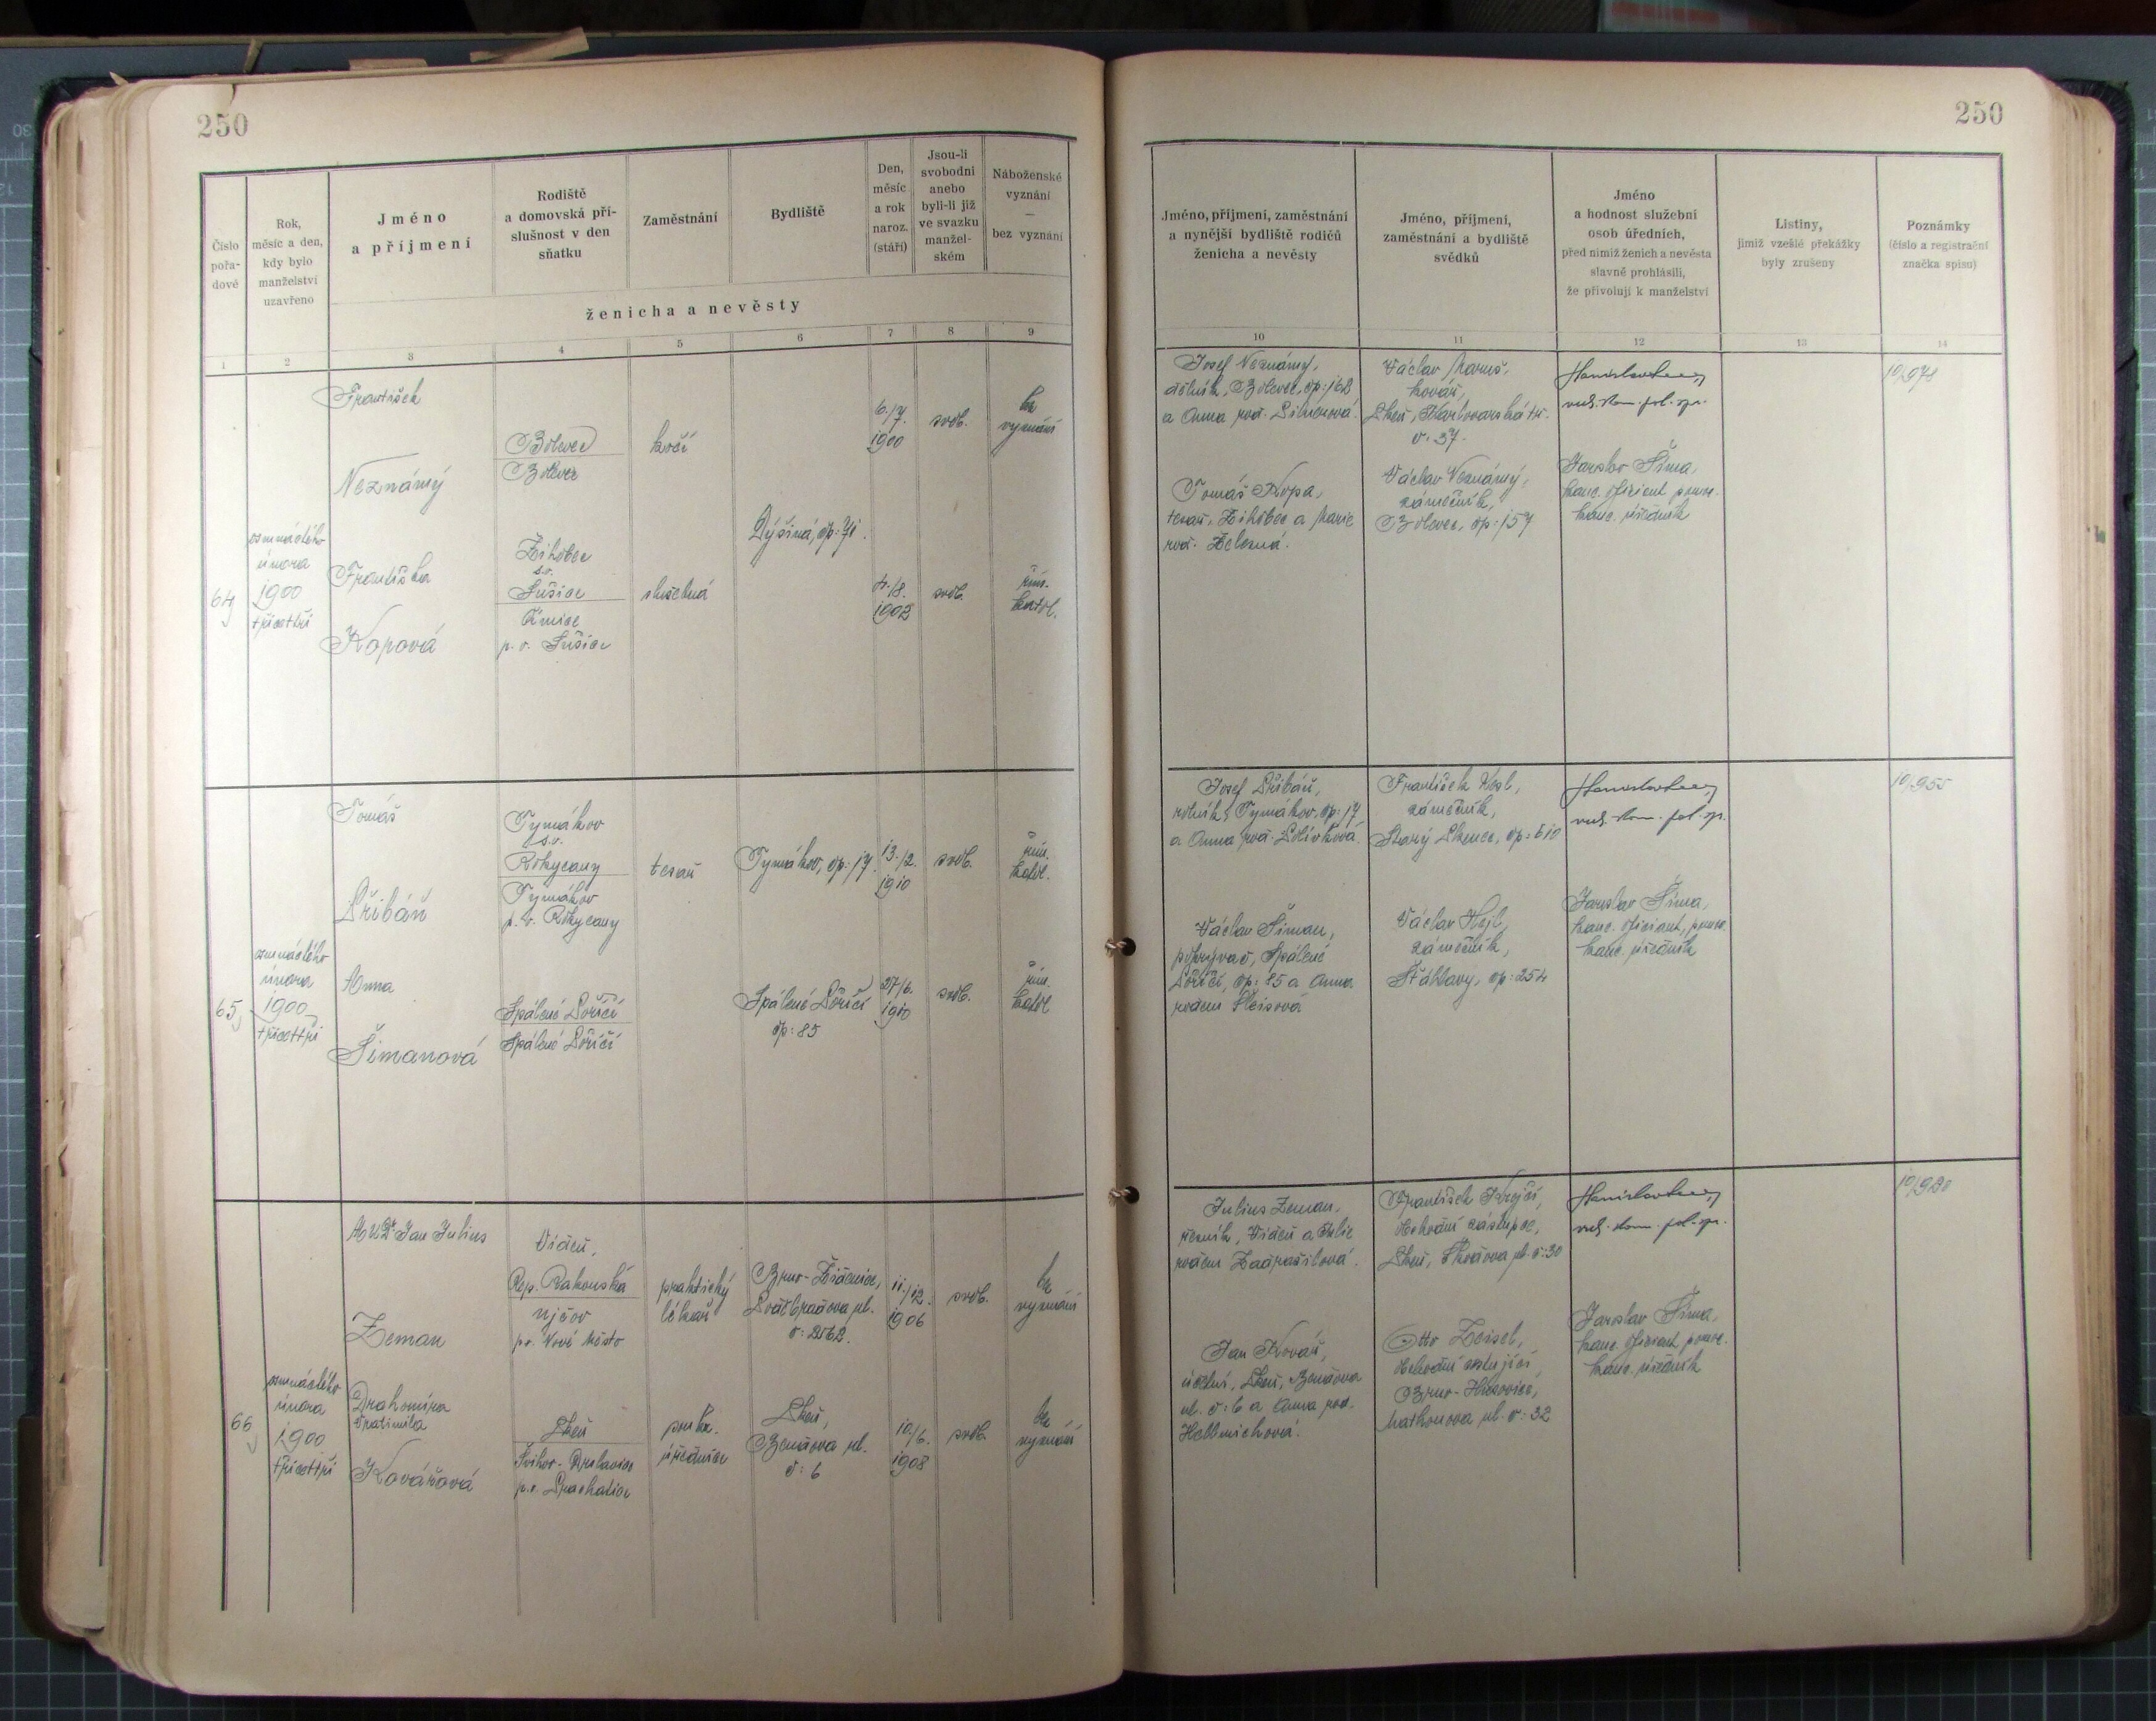 250
Číslo pořa-dové
Rok, měsíc a den, kdy bylo manželství uzavřeno
Jméno a příjmení
Rodiště a domovská pří-slušnost v den sňatku
Zaměstnání
Bydliště
Den, měsíc a rok naroz. (stáří)
Jsou-li svobodni anebo byli-li již ve svazku manžel-ském
Náboženské vyznání — bez vyznání
ženicha a nevěsty
1 2 3 4 5 6 7 8 9
František
Neznámý
Bolevec
Bolevec
kočí
6./7.
1900
svob.
bez
vyznání
Dýšina, čp: 71.
64
osmnáctého
února
1900
třicettři
Františka
Kopová
Žihobce
s.o.
Sušice
p. o. Sušice
služebná
1902
svob.
řím.
katol.
Tomáš
Přibáň
Tymákov
s.o.
Rokycany
Tymákov
p. o. Rokycany
tesař
Tymákov, čp: 17.
13./2.
1910
svob.
řím.
katol.
65
osmnáctého
února
1900
třicettři
Anna
Šimanová
Spálené Poříčí
Spálené Poříčí
Spálené Poříčí
čp: 85
27/6.
1910
svob.
řím.
katol.
MUDr. Jan Julius
Zeman
Vídeň,
Rep. Rakouská
p.o. Nové Město
praktický
lékař
Brno-Židenice,
Poděbradova ul.
11./12.
1906
svob.
bez
vyznání
66
osmnáctého
února
1900
třicettři
Drahomíra
Vratimila
Kovářová
Plzeň
p.o. Prachatice
úřednice
Plzeň,
Benešova ul.
č: 6
10./6.
1908
svob.
bez
vyznání
250
Jméno, příjmení, zaměstnání a nynější bydliště rodičů ženicha a nevěsty
Jméno, příjmení, zaměstnání a bydliště svědků
Jméno a hodnost služební osob úředních, před nimiž ženich a nevěsta slavně prohlásili, že přivolují k manželství
Listiny, jimiž vzešlé překážky byly zrušeny
Poznámky (číslo a registrační značka spisu)
10 11 12 13 14
Josef Neznámý,
dělník, Bolevec, čp: 162
a Anna roz.
Tomáš Kopa,
tesař, Žihobce a Marie
roz. Železná.
Václav
kovář,
Plzeň, Karlovarská tř.
č. 37.
Václav Neznámý,
zámečník,
Bolevec, čp: 157
vrch. kom. pol. spr.
Jaroslav Šíma,
kanc. oficiant, pomoc.
kanc. úředník
10/978
Josef Přibáň,
rolník, Tymákov, čp: 17
a Anna roz. Polívková
Václav Šiman,
pokrývač, Spálené
Poříčí, čp: 85 a Anna
rozená
František
zámečník,
Starý Plzenec, čp: 510
Václav Hejl,
zámečník,
Šťáhlavy, čp: 254
vrch. kom. pol. spr.
Jaroslav Šíma,
kanc. oficiant, pomoc.
kanc. úředník
10/955
Julius Zeman,
řezník, Vídeň a
rozená Zadražilová.
Jan Kovář,
účetní, Plzeň, Benešova
ul. č: 6 a Anna roz.
Hellmichová.
František Krejčí,
obchodní zástupce,
Plzeň, ul. č: 30
Otto Zeisel,
obchodní cestující,
Brno-Husovice,
ul. č: 32
vrch. kom. pol. spr.
Jaroslav Šíma,
kanc. oficiant pomoc.
kanc. úředník